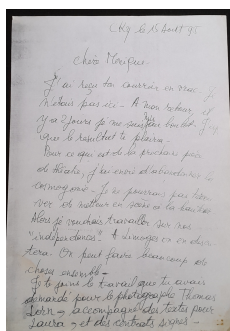 le 15 Août 95
Chère Monique
J'ai reçu ton courrier en mai
n'étais pas ici - A mon retour, il
y a 2 jours je me suis
que le résultat te plaira.
Pour ce qui est de la prochaine pièce
de théâtre, j'ai envie d'abandonner la
- Je ne pourrai pas trou
ver de metteur en scène à la hauteur
Alors je voudrais travailler sur nos
"indépendances". A Limoges on en discu
tera. On peut faire beaucoup de
choses ensemble -
Je te joins le travail que tu avais
demandé pour le photographe Thomas
Dorn, accompagné des textes pour
Laura, et des contrats signés -